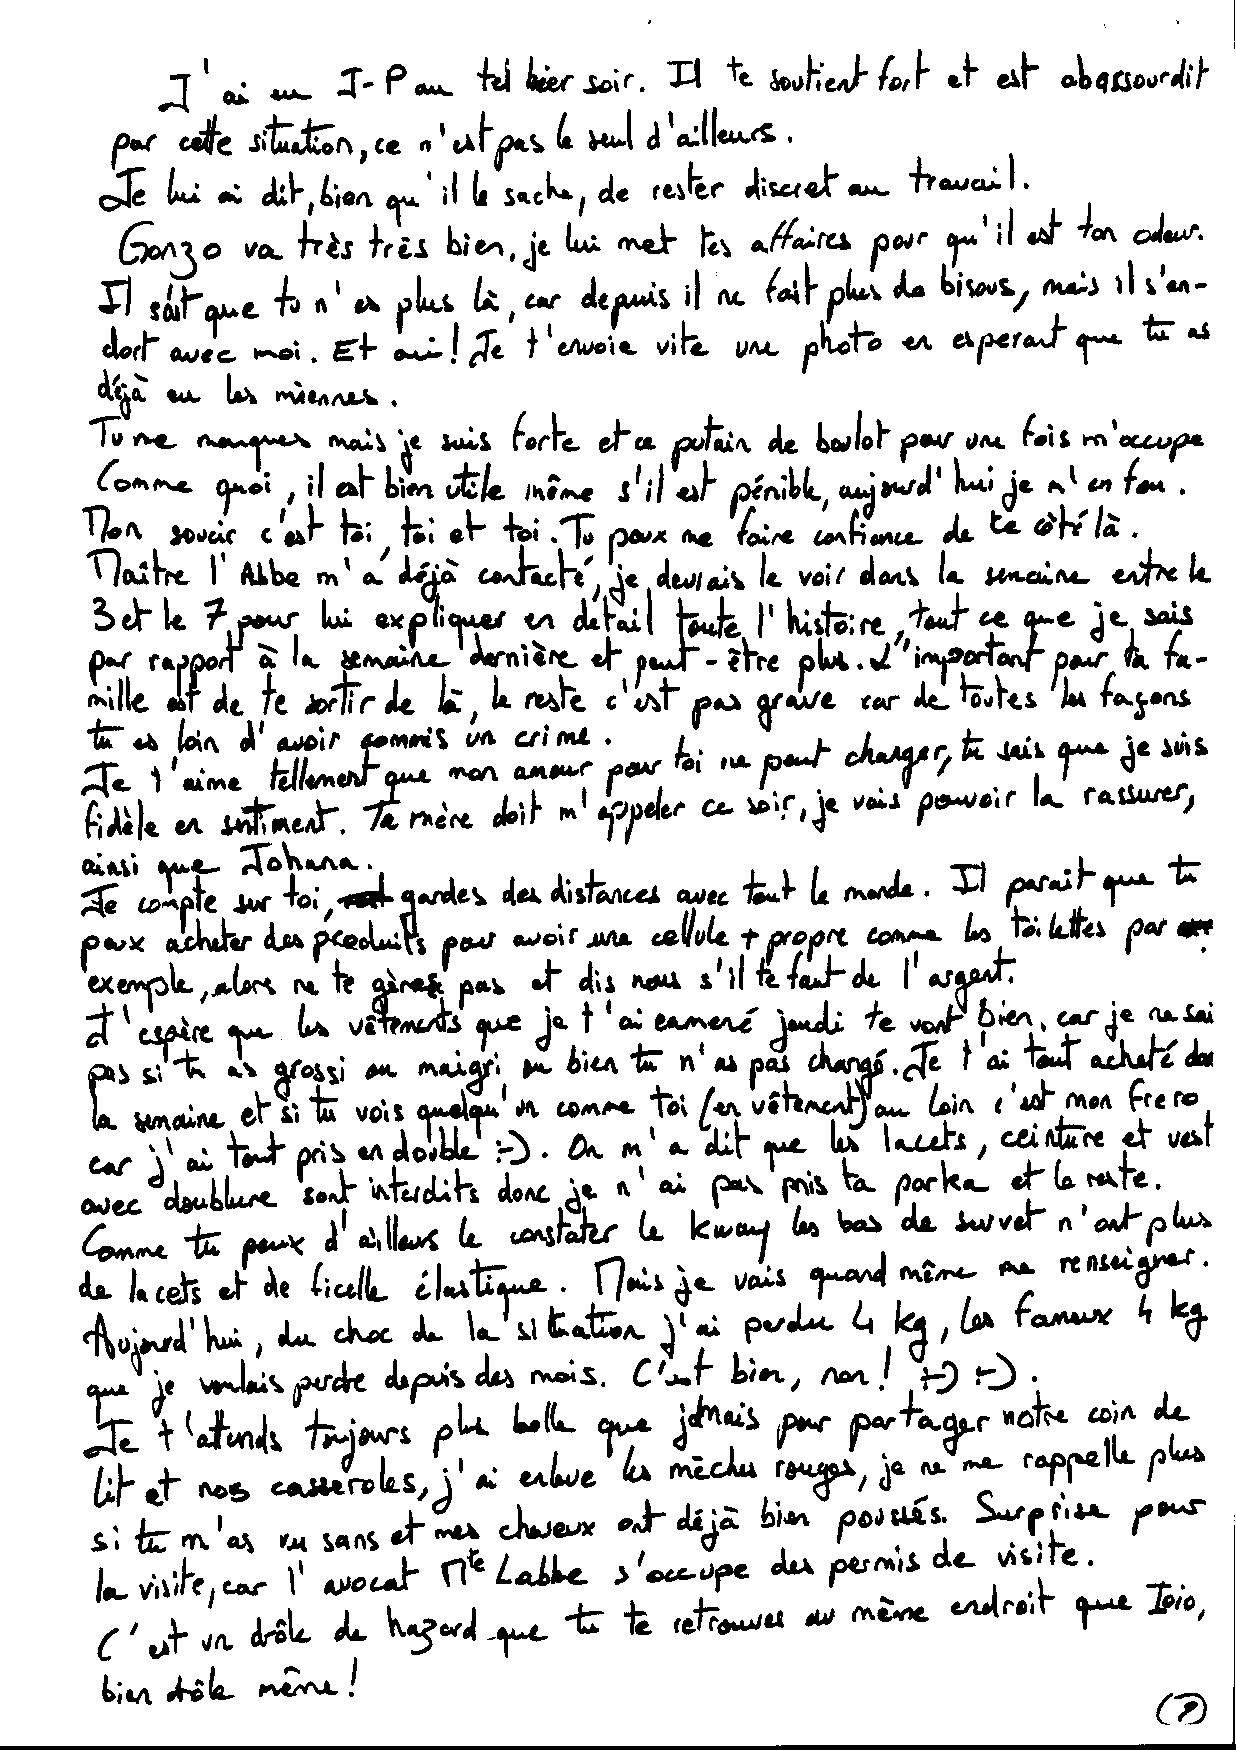 J'ai eu J-P au tel hier soir. Il te soutient fort et est abassourdit
par cette situation, ce n'est pas le seul d'ailleurs.
Je lui ai dit, bien qu'il le sache, de rester discret au travail.
Gonzo va très très bien, je lui met tes affaires pour qu'il est ton odeur.
Il sait que tu n'es plus là, car depuis il ne fait plus de bisous, mais il s'en-
dort avec moi. Et oui! Je t'envoie vite une photo en esperant que tu as
déjà eu les miennes.
Tu me manques mais je suis forte et ce putain de boulot pour une fois m'occupe
Comme quoi, il est bien utile même s'il est pénible, aujourd'hui je m'en fou.
Mon soucis c'est toi, toi et toi. Tu peux me faire confiance de ce côté là.
Maître l'Abbe m'a déjà contacté, je devrais le voir dans la semaine entre le
3 et le 7 pour lui expliquer en détail toute l'histoire, tout ce que je sais
par rapport à la semaine dernière et peut-être plus. L'important pour ta fa-
mille est de te sortir de là, le reste c'est pas grave car de toutes les façons
tu es loin d'avoir commis un crime.
Je t'aime tellement que mon amour pour toi ne peut changer, tu sais que je suis
fidèle en sentiment. Ta mère doit m'appeler ce soir, je vais pouvoir la rassurer,
ainsi que Johana.
Je compte sur toi, gardes des distances avec tout le monde. Il parait que tu
peux acheter des produits pour avoir une cellule + propre comme les toilettes par
exemple, alors ne te gènes pas et dis nous s'il te faut de l'argent.
J'espère que les vêtements que je t'ai emmené jeudi te vont bien, car je ne sai
pas si tu as grossi ou maigri ou bien tu n'as pas changé. Je t'ai tout acheté dans
la semaine et si tu vois quelqu'un comme toi (en vêtement) au loin c'est mon frero
car j'ai tout pris en double :-). On m'a dit que les lacets, ceinture et vest
avec doublure sont interdits donc je n'ai pas pris ta parka et le reste.
Comme tu peux d'ailleurs le constater le kway les bas de survet n'ont plus
de lacets et de ficelle élastique. Mais je vais quand même me renseigner.
Aujourd'hui, du choc de la situation j'ai perdu 4 kg, les fameux 4 kg
que je voulais perdre depuis des mois. C'est bien, non! :-) :-).
Je t'attends toujours plus belle que jamais pour partager notre coin de
lit et nos casseroles, j'ai enleve les mèches rouges, je ne me rappelle plus
si tu m'as vu sans et mes cheveux ont déjà bien poussés. Surprise pour
la visite, car l'avocat Mte Labbe s'occupe des permis de visite.
C'est un drôle de hazard que tu te retrouves au même endroit que Toio,
bien drôle même!